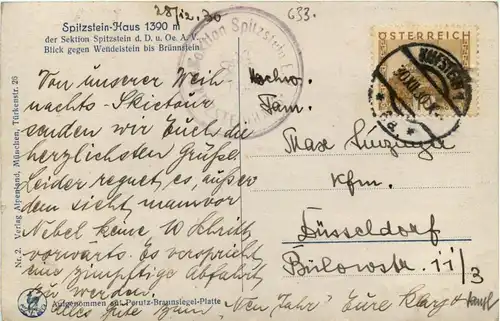 28/12.30
633.
Spitzstein-Haus 1390 m
der Sektion Spitzstein d. D. u. Oe. A. V.
Blick gegen Wendelstein bis Brünnstein
Sektion Spitzstein
ÖSTERREICH
KUFSTEIN
Von unserer Weih
nachts-Skietour
senden wir Euch die
herzlichsten Grüße.
Leider regnet es, außer
dem sieht man vor
Nebel keine 10 Schritt
vorwärts. Es verspricht
eine zünftige Abfahrt
zu werden.
Alles Gute zum "Neu Jahr" Eure
Hochw.
Fam.
Max
Kfm.
Düsseldorf
Bülowstr. 11/3
Nr. 2. Verlag Alpenland, München, Türkenstr. 25
Aufgenommen auf Perutz-Braunsiegel-Platte